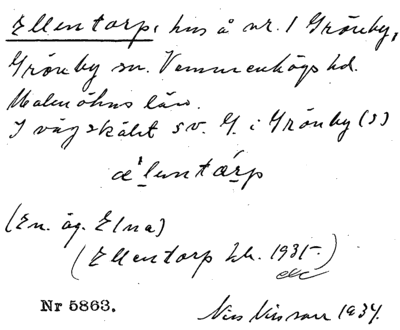 Ellentorp, hus å nr. 1 Grönby,
Grönby sn. Vemmenhögs hd.
Malmöhus län.
I vägskälet s.v. G. i Grönby (s)
(En. äg. Elna)
(Ellentorp hk. 1931-)
Nr 5863.
Nils Nilsson 1934.